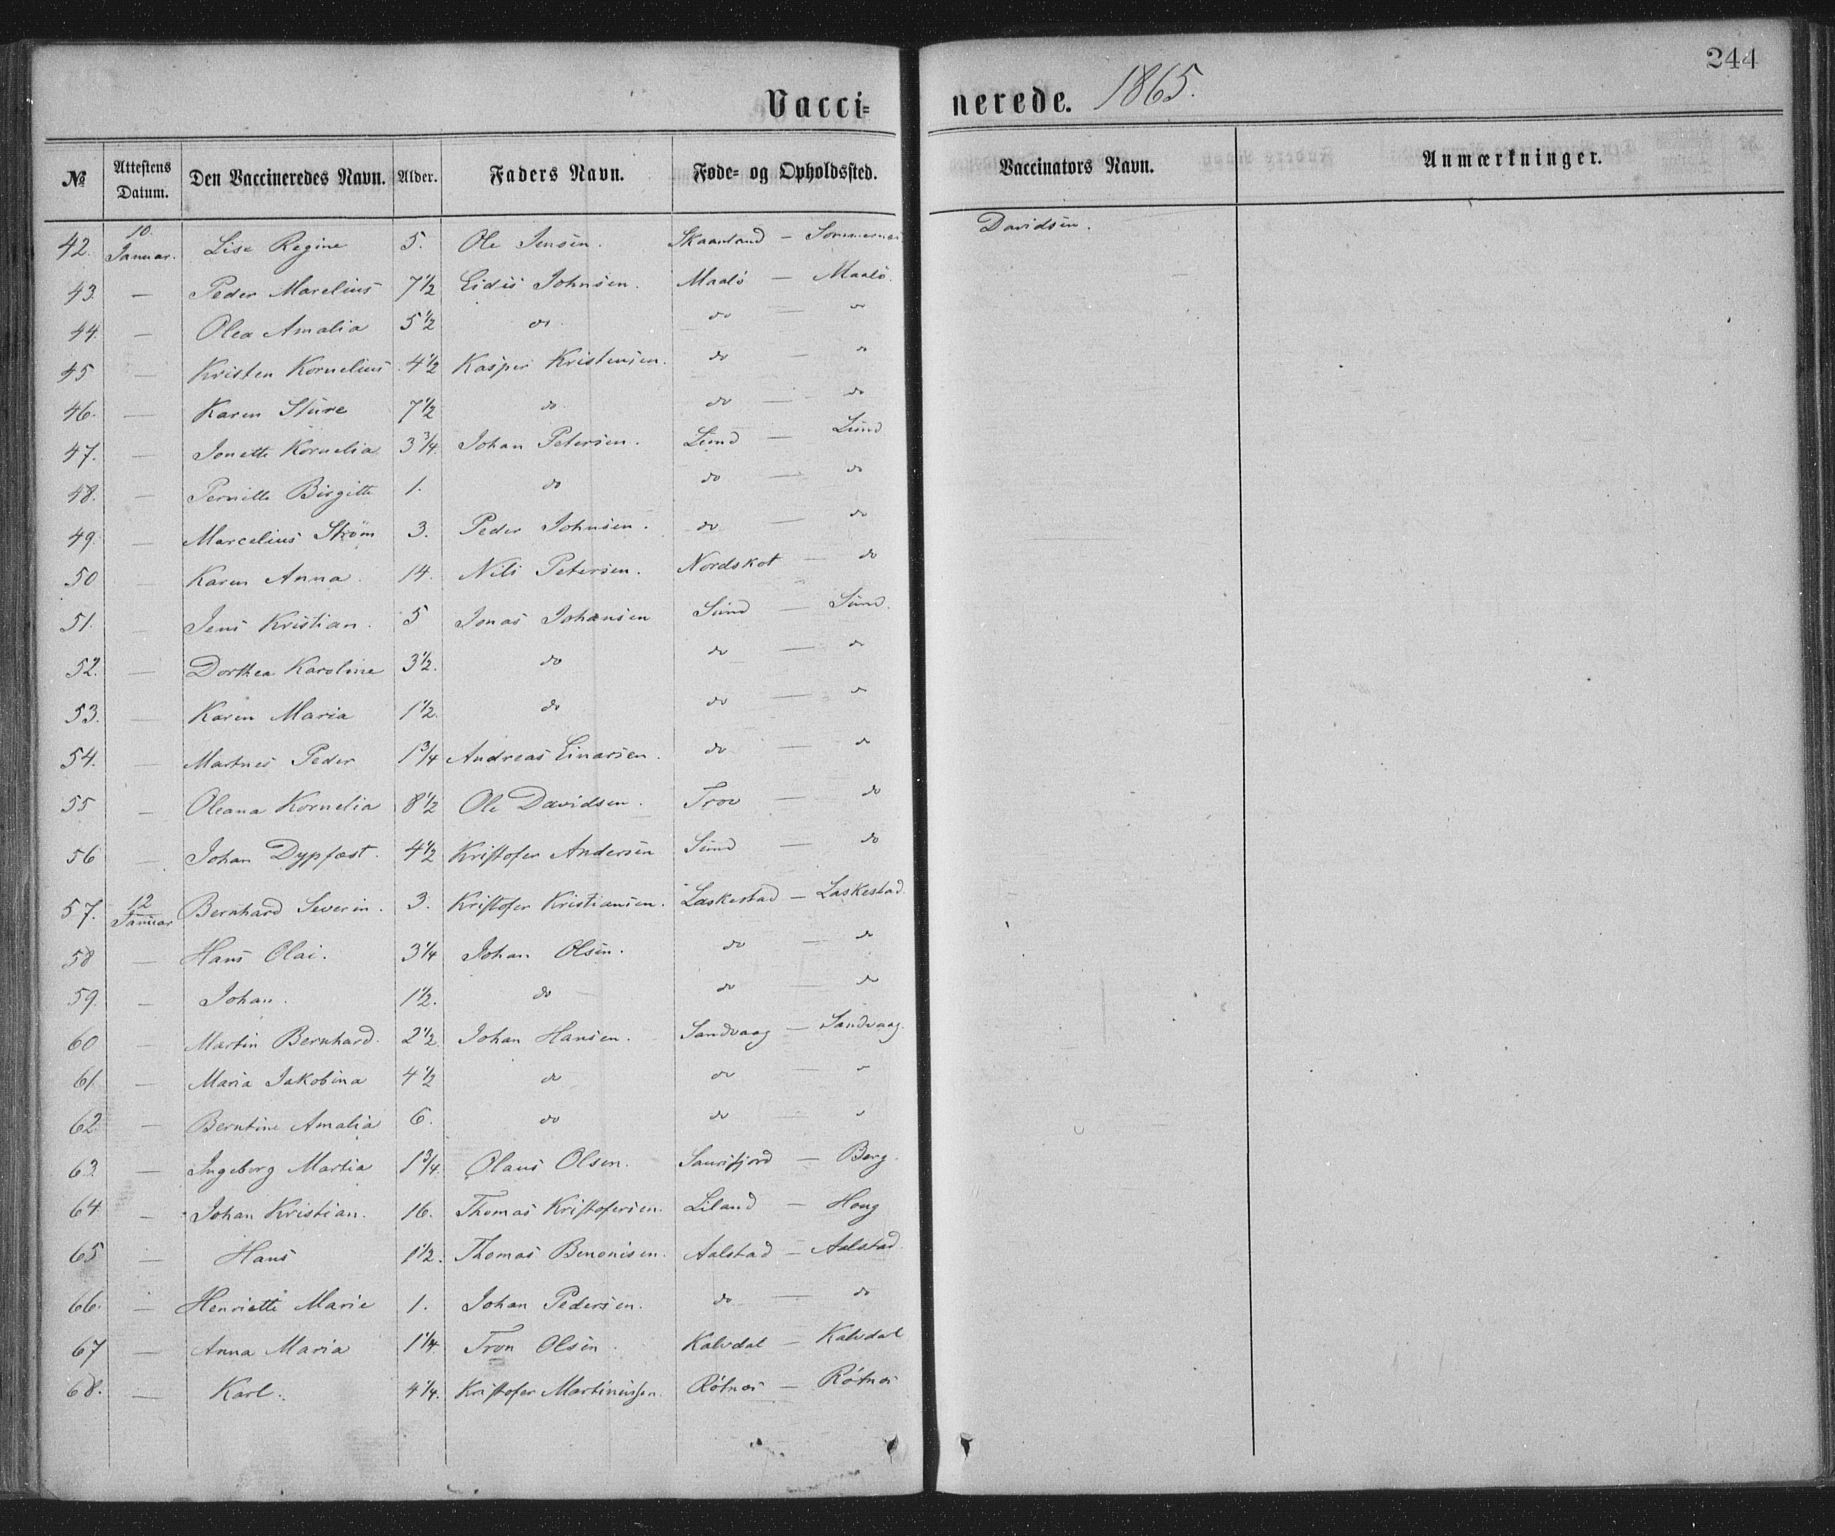 244
Vaccinerede. 1865.
№ Attestens Datum. Den Vaccineredes Navn. Alder. Faders Navn. Føde- og Opholdssted. Vaccinators Navn. Anmærkninger.
42. 10. Januar. Lise Regine 5. Ole Jensen. Skaanland — Davidsen.
43. — Peder Marelius 7 1/2 Eidis Johnsen. Maalö — Maalö.
44. — Olea Amalia 5 1/2 do. do — "
45 — Kristen Kornelius 4 1/2 Kasper Kristensen. do — "
46. — Karen Sture 7 1/2 do do — do
47. — Jonette Kornelia 3 3/4. Johan Petersen. Lund — Lund
48. — Pernille Birgitte 1. do do — do
49. — Marcelius Strøm 3. Peder Johnsen. do — do
50 — Karen Anna. 14. Nils Petersen. Nordskot — do
51. — Jens Kristian. 5 Jonas Johansen Sund — Sund.
52. — Dorthea Karoline 3 1/2. do do — "
53. — Karen Maria 1 1/2. do do — "
54. — Martnes Peder 1 3/4 Andreas Einarsen. do — "
55 — Oleana Kornelia 8 1/2 Ole Davidsen. Trov — do
56 — Johan Dypfest. 4 1/2 Kristofer Andersen Sund — do
57. 12 Januar Bernhard Severin. 3. Kristofer Kristiansen. Laskestad — Laskestad.
58 — Hans Olai. 3 1/4 Johan Olsen. do — do
59. — Johan. 1 1/2. do do — do
60 — Martin Bernhard. 2 1/2 Johan Hansen. Sandvaag — Sandvaag.
61 — Maria Jakobina 4 1/2 do do — "
62 — Berntine Amalia 6. do do — "
63. — Ingeborg Martia 1 3/4. Olaus Olsen. — Berg.
64. — Johan Kristian. 16. Thomas Kristofersen. Liland — Houg
65 — Hans 1 1/2. Thomas Benonisen. Aalstad — Aalstad.
66. — Henriette Marie 1. Johan Pedersen. do — do
67 — Anna Maria 1 1/4. Tron Olsen. Kalvdal — Kalvdal
68. — Karl. 4 1/4. Kristofer Martinussen. Rötnes — Rötnes